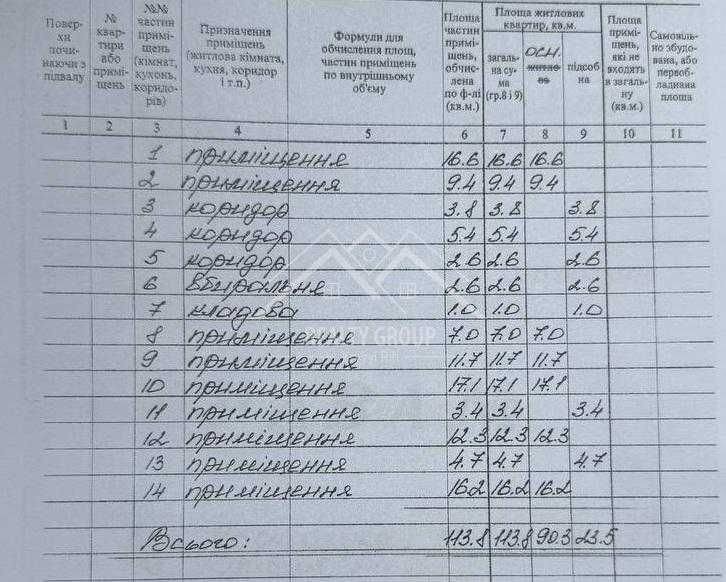 Поверхи починаючи з підвалу | № квартири або приміщень | №№ частин приміщень (кімнат, кухонь, коридорів) | Призначення приміщень (житлова кімната, кухня, коридор і т.п.) | Формули для обчислення площ, частин приміщень по внутрішньому об'єму | Площа частин приміщень, обчислена по ф-лі (кв.м.) | Площа житлових квартир, кв.м. | Площа приміщень, які не входять в загальну (кв.м.) | Самовільно збудована, або переобладнана площа
загальна сума (гр.8 і 9) | осн. житлова | підсобна
1 2 3 4 5 6 7 8 9 10 11
1 приміщення 16.6 16.6 16.6
2 приміщення 9.4 9.4 9.4
3 коридор 3.8 3.8 3.8
4 коридор 5.4 5.4 5.4
5 коридор 2.6 2.6 2.6
6 вбиральня 2.6 2.6 2.6
7 кладова 1.0 1.0 1.0
REALTY GROUP
8 приміщення 7.0 7.0 7.0
9 приміщення 11.7 11.7 11.7
10 приміщення 17.1 17.1 17.1
11 приміщення 3.4 3.4 3.4
12 приміщення 12.3 12.3 12.3
13 приміщення 4.7 4.7 4.7
14 приміщення 16.2 16.2 16.2
Всього: 113.8 113.8 90.3 23.5